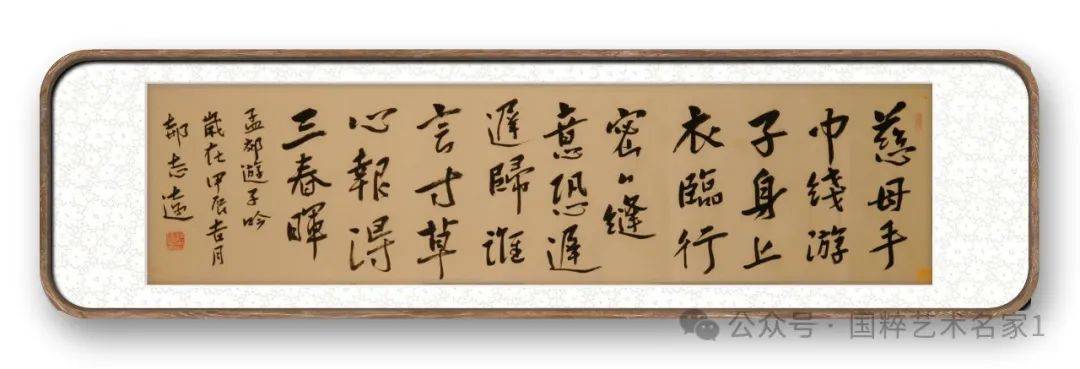 慈母手
巾线游
子身上
衣臨行
密々縫
意恐遲
遲歸誰
言寸草
心報得
三春暉
孟郊遊子吟
歲在甲辰吉月
郝志遠
公众号 · 国粹艺术名家1